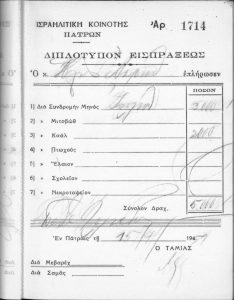 ΙΣΡΑΗΛΙΤΙΚΗ ΚΟΙΝΟΤΗΣ
ΠΑΤΡΩΝ
Ἀρ 1714
ΔΙΠΛΟΤΥΠΟΝ ΕΙΣΠΡΑΞΕΩΣ
Ὁ κ. ἐπλήρωσεν
ΠΟΣΟΝ
1) Διὰ Συνδρομὴν Μηνὸς
2) » Μιτσβὼθ
3) » Καὰλ
4) » Πτωχοὺς
5) » Ἔλαιον
6) » Σχολεῖον
7) » Νεκροταφεῖον
Σύνολον Δραχ. 5000
Ἐν Πάτραις τῇ 15
Ο ΤΑΜΙΑΣ
Διὰ Μεβαρὲχ
Διὰ Σαμᾶς